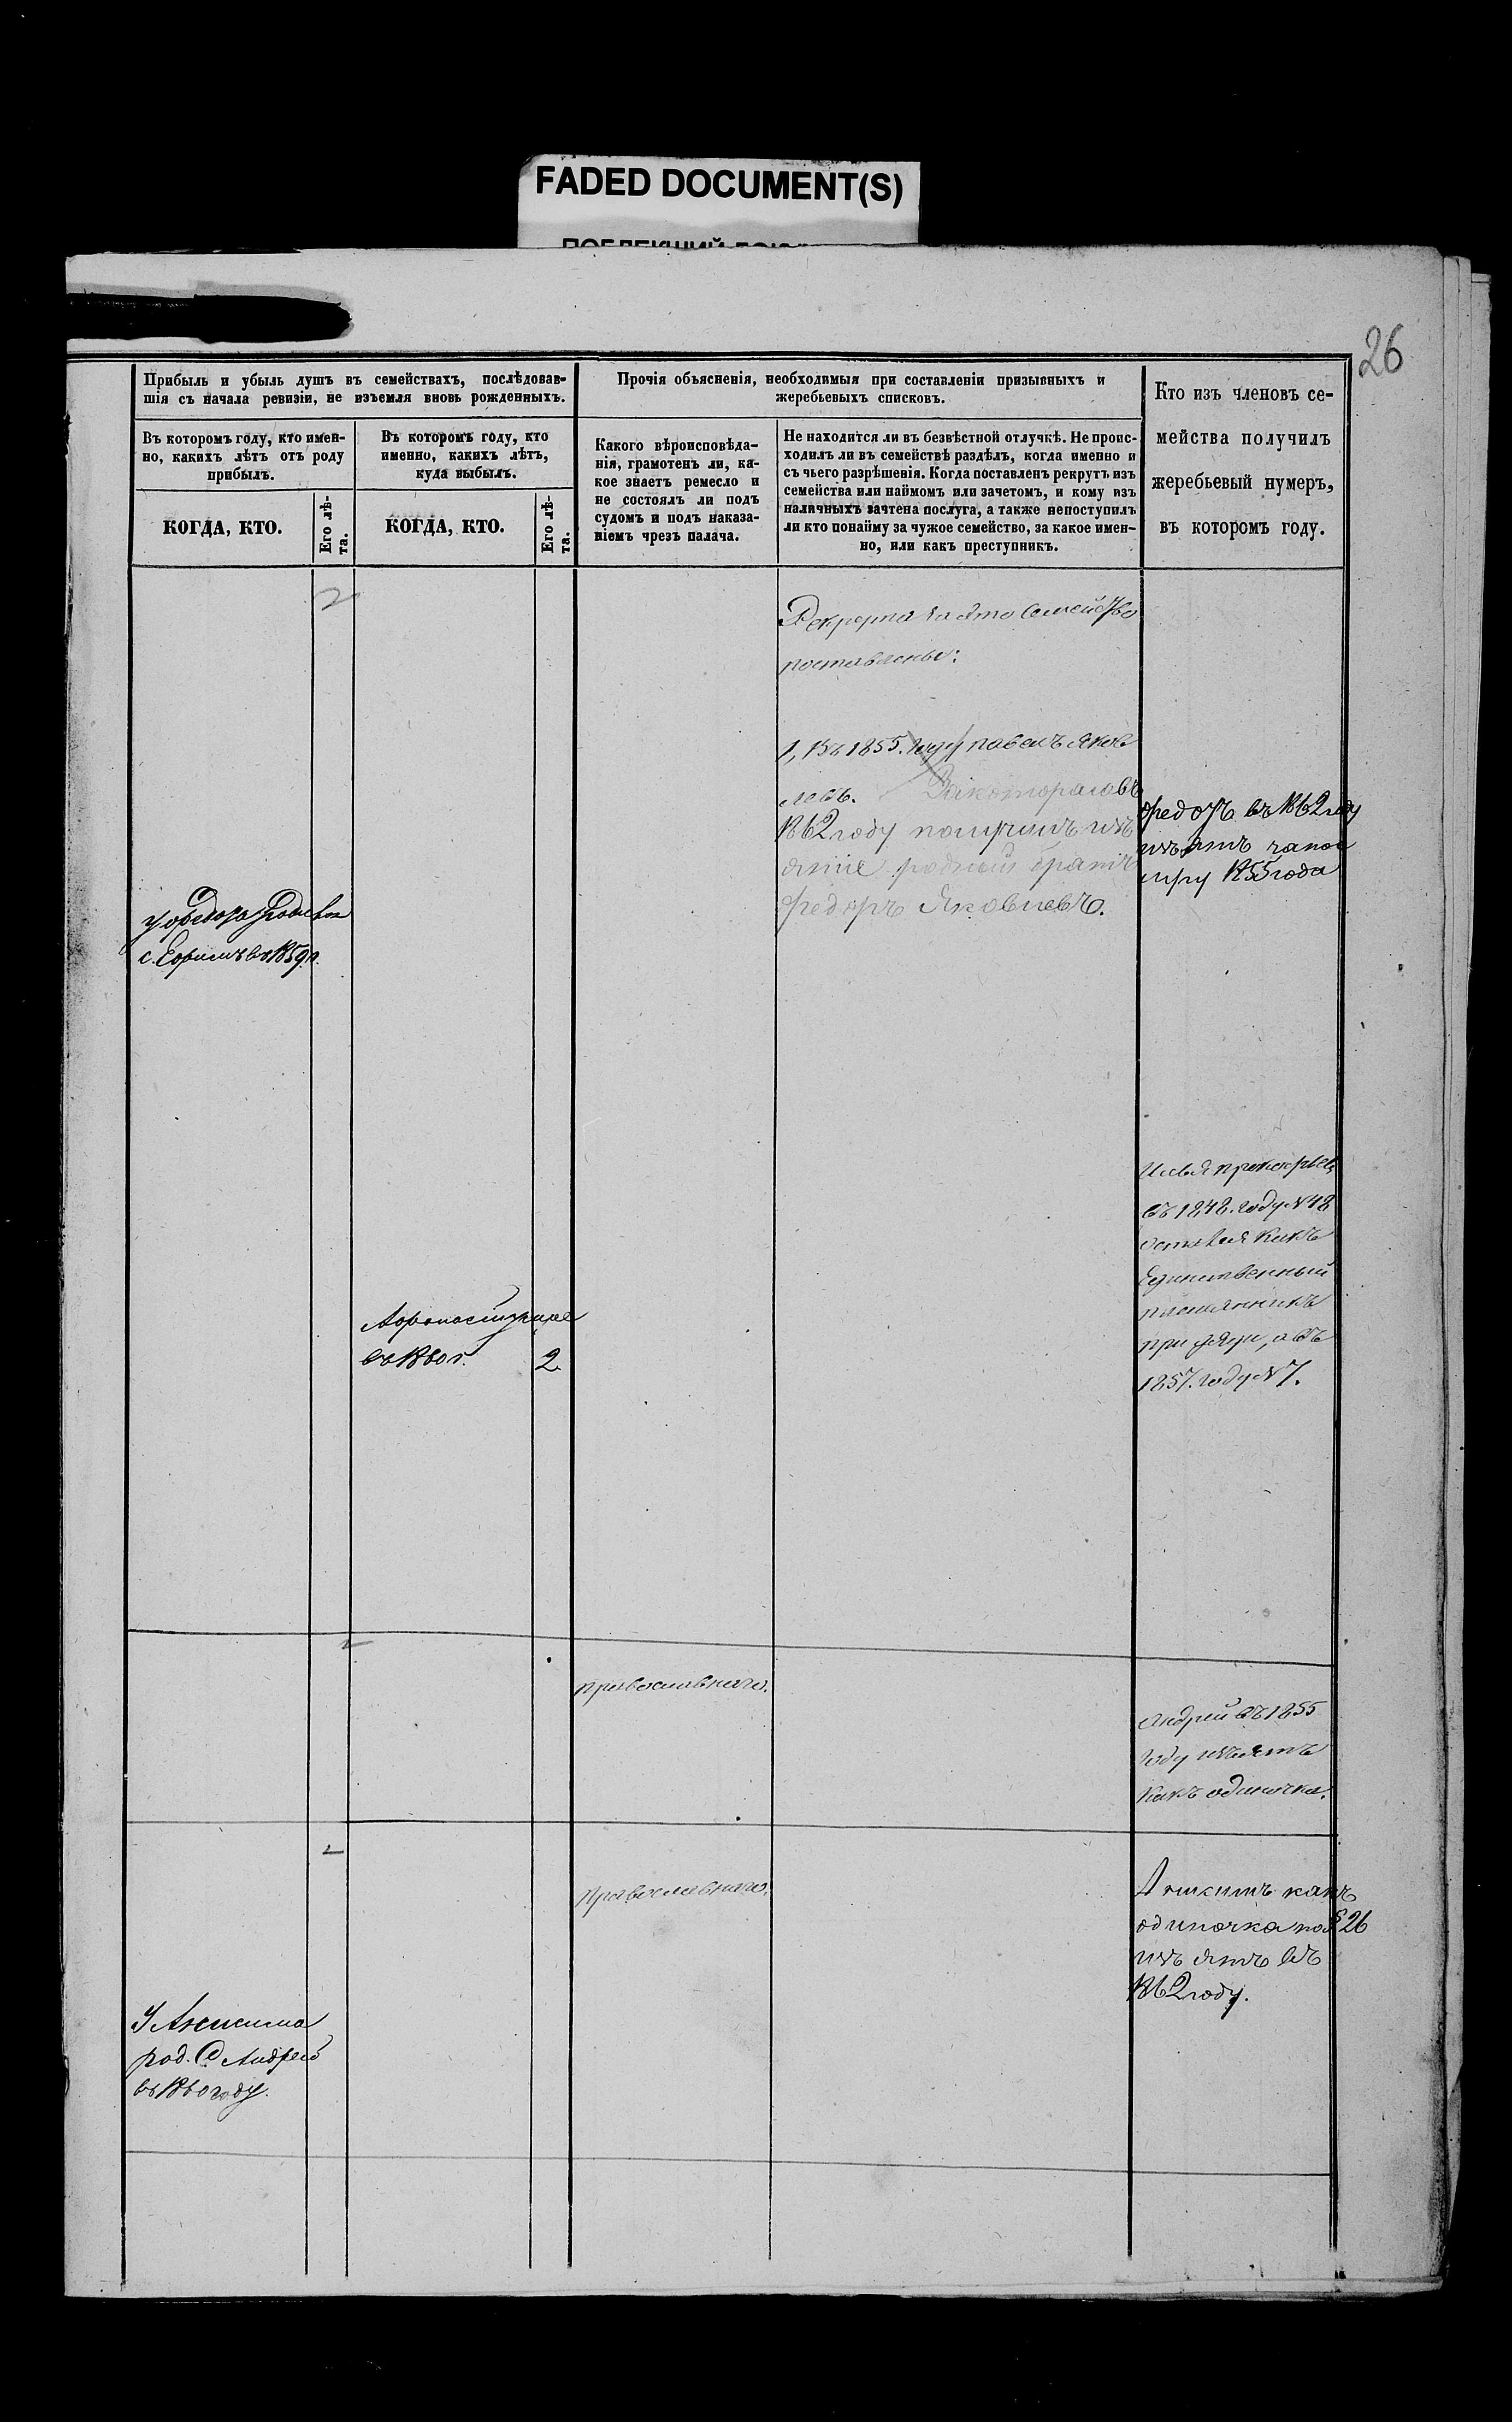 FADED DOCUMENT(S)
26
Прибыль и убыль душъ въ семействахъ, послѣдовав-
шія съ начала ревизіи, не изъемля вновь рожденныхъ.
Прочія объясненія, необходимыя при составленіи призывныхъ и
жеребьевыхъ списковъ.
Кто изъ членовъ се-
мейства получилъ
жеребьевый нумеръ,
въ которомъ году.
Въ которомъ году, кто имен-
но, какихъ лѣтъ отъ роду
прибылъ.
Въ которомъ году, кто
именно, какихъ лѣтъ,
куда выбылъ.
Какого вѣроисповѣда-
нія, грамотенъ ли, ка-
кое знаетъ ремесло и
не состоялъ ли подъ
судомъ и подъ наказа-
ніемъ чрезъ палача.
Не находится ли въ безвѣстной отлучкѣ. Не проис-
ходилъ ли въ семействѣ раздѣлъ, когда именно и
съ чьего разрѣшенія. Когда поставленъ рекрутъ изъ
семейства или наймомъ или зачетомъ, и кому изъ
наличныхъ зачтена послуга, а также непоступилъ
ли кто понайму за чужое семейство, за какое имен-
но, или какъ преступникъ.
КОГДА, КТО.
Его лѣ-
та.
КОГДА, КТО.
Его лѣ-
та.
Рекрута за это семейство
поставлены:
1, Въ 1855. году павелъ Яков
левъ. Закотораговъ
1862 году получилъ изъ
ятіе родной братъ
федоръ Яковлевъ.
федотъ въ 1862 году
изъятъ
1855 года
у федота родився
с. Ефимъ въ 1859 г.
Илья прокофьев
въ 1848. году №48
остался какъ
Единственный
племянникъ
при дяди, а въ
1857. году №7.
въ 1860 г. 2
православнаго.
Андрей въ 1855
году изъятъ
какъ одиночка.
православнаго.
какъ
одиночка по § 26
изъ ятъ въ
1862 году.
У
род. С Андрей
въ 1860 году.